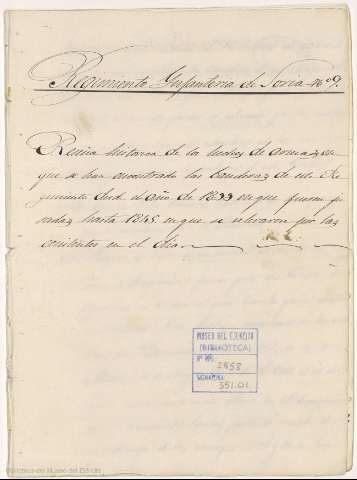 Regimiento Infanteria de Soria nº 9.
Reseña historica de los hechos de armas, en
que se han encontrado las banderas de este Re-
gimiento desde el año de 1833 en que fueron ju-
radas, hasta 1845 en que se relevaron por las
ecsistentes en el dia.
MUSEO DEL EJERCITO
(BIBLIOTECA)
Nº
2958
SIGNATURA
351.01
Biblioteca del Museo del Ejército